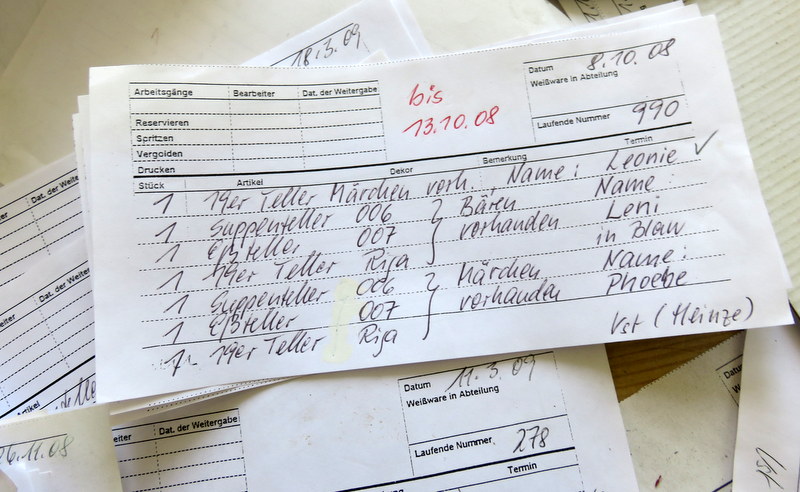 18.3.09
Datum 8.10.08
Weißware in Abteilung
Laufende Nummer 990
bis
13.10.08
Arbeitsgänge Bearbeiter Dat. der Weitergabe
Reservieren
Spritzen
Vergolden
Drucken
Stück Artikel Dekor Bemerkung Termin
1 19er Teller Märchen vorh., Name: Leonie ✓
1 Suppenteller 006 } Bären Name:
1 Eßteller 007 vorhanden Leni
1 19er Teller Rija in Blau
1 Suppenteller 006 } Märchen Name:
1 Eßteller 007 vorhanden Phoebe
1 19er Teller Rija
Vst (Heinze)
Dat. der Weite
Dat. der Weite
Artikel
26.11.08
eiter Dat. der Weitergabe
Datum 11.3.09
Weißware in Abteilung
Laufende Nummer 278
Termin
Datum
Weißw
Laufe
Vst